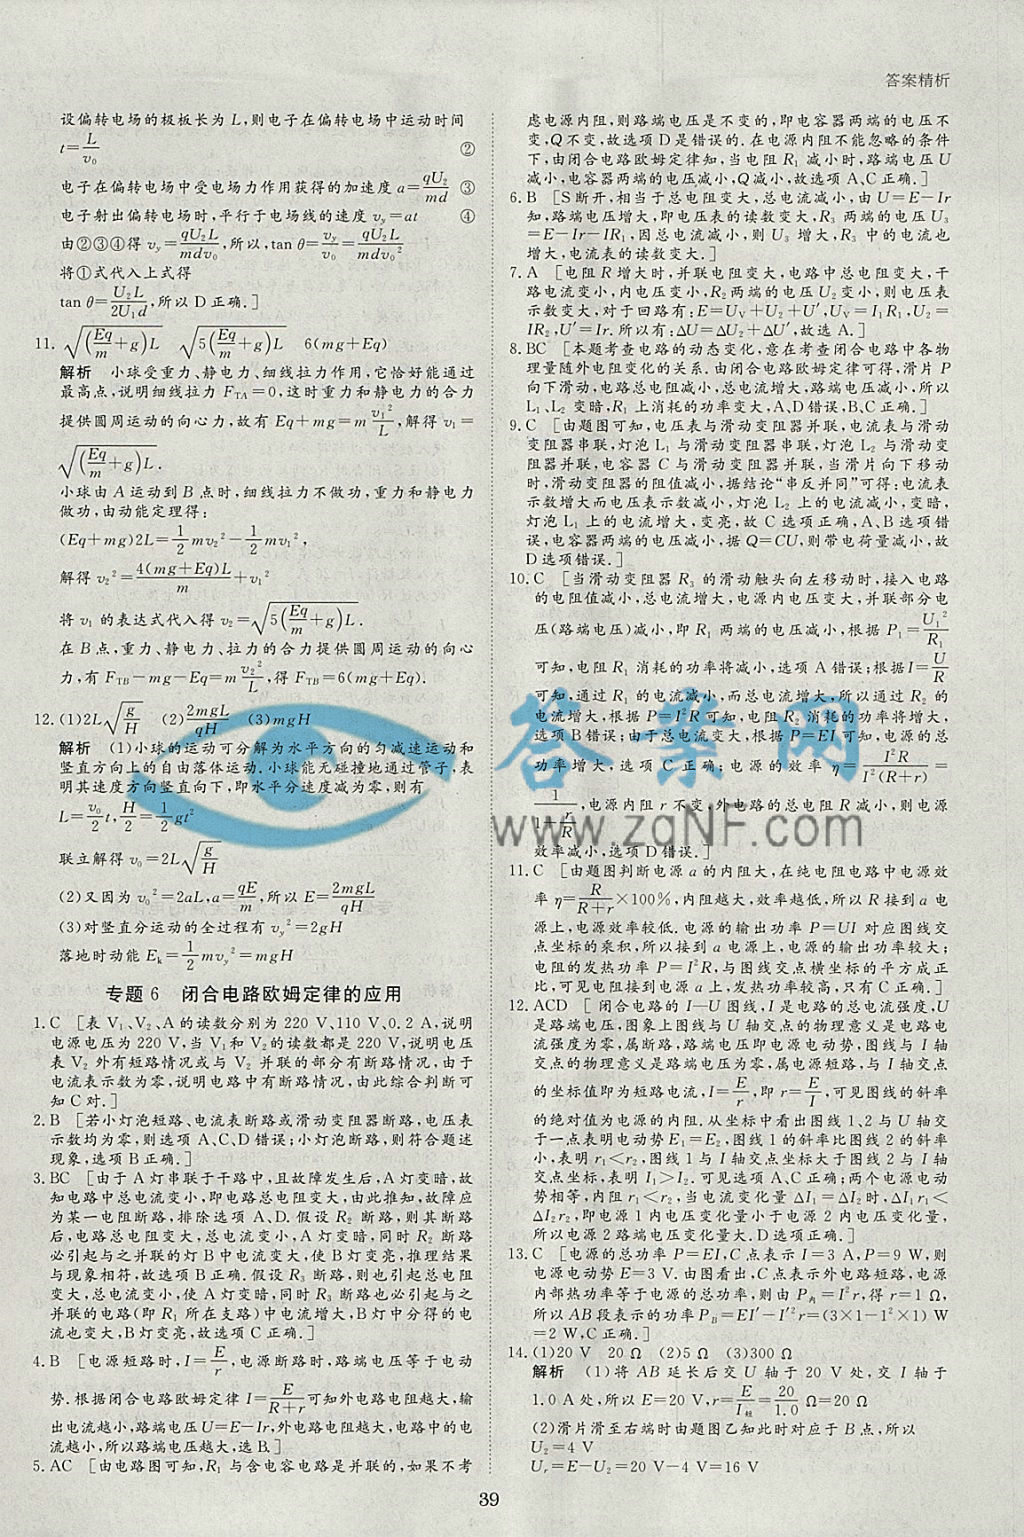 答案精析
设偏转电场的极板长为 L,则电子在偏转电场中运动时间
t=L/v₀ ②
电子在偏转电场中受电场力作用获得的加速度 a=qU₂/md ③
电子射出偏转电场时,平行于电场线的速度 v_y=at ④
由②③④得 v_y=qU₂L/mdv₀,所以,tan θ=v_y/v₀=qU₂L/mdv₀²
将①式代入上式得
tan θ=U₂L/2U₁d,所以 D 正确.]
11. √((Eq/m+g)L) √(5(Eq/m+g)L) 6(mg+Eq)
解析 小球受重力、静电力、细线拉力作用,它恰好能通过
最高点,说明细线拉力 F_TA=0,这时重力和静电力的合力
提供圆周运动的向心力,故有 Eq+mg=m v₁²/L,解得 v₁=
√((Eq/m+g)L).
小球由 A 运动到 B 点时,细线拉力不做功,重力和静电力
做功,由动能定理得:
(Eq+mg)2L=1/2 mv₂²-1/2 mv₁²,
解得 v₂²=4(mg+Eq)L/m+v₁²
将 v₁ 的表达式代入得 v₂=√(5(Eq/m+g)L).
在 B 点,重力、静电力、拉力的合力提供圆周运动的向心
力,有 F_TB-mg-Eq=m v₂²/L,得 F_TB=6(mg+Eq).
12. (1)2L√(g/H) (2)2mgL/qH (3)mgH
解析 (1)小球的运动可分解为水平方向的匀减速运动和
竖直方向上的自由落体运动.小球能无碰撞地通过管子,表
明其速度方向竖直向下,即水平分速度减为零,则有
L=v₀/2 t,H/2=1/2 gt²
联立解得 v₀=2L√(g/H)
(2)又因为 v₀²=2aL,a=qE/m,所以 E=2mgL/qH
(3)对竖直分运动的全过程有 v_y²=2gH
落地时动能 E_k=1/2 mv_y²=mgH
专题 6 闭合电路欧姆定律的应用
1. C [表 V₁、V₂、A 的读数分别为 220 V、110 V、0.2 A,说明
电源电压为 220 V,当 V₁和 V₂的读数都是 220 V,说明电压
表 V₂ 外有短路情况或与 V₂ 并联的部分有断路情况,由于
电流表示数为零,说明电路中有断路情况,由此综合判断可
知 C 对.]
2. B [若小灯泡短路、电流表断路或滑动变阻器断路,电压表
示数均为零,则选项 A、C、D 错误;小灯泡断路,则符合题述
现象,选项 B 正确.]
3. BC [由于 A 灯串联于干路中,且故障发生后,A 灯变暗,故
知电路中总电流变小,即电路总电阻变大,由此推知,故障应
为某一电阻断路,排除选项 A、D. 假设 R₂ 断路,则其断路
后,电路总电阻变大,总电流变小,A 灯变暗,同时 R₂ 断路
必引起与之并联的灯 B 中电流变大,使 B 灯变亮,推理结果
与现象相符,故选项 B 正确.假设 R₃ 断路,则也引起总电阻
变大,总电流变小,使 A 灯变暗,同时 R₃ 断路也必引起与之
并联的电路(即 R₁ 所在支路)中电流增大,B 灯中分得的电
流也变大,B 灯变亮,故选项 C 正确.]
4. B [电源短路时,I=E/r,电源断路时,路端电压等于电动
势.根据闭合电路欧姆定律 I=E/(R+r)可知外电路电阻越大,输
出电流越小,路端电压 U=E-Ir,外电路电阻越大,电路中的电
流越小,所以路端电压越大,选 B.]
5. AC [由电路图可知,R₁ 与含电容电路是并联的,如果不考
虑电源内阻,则路端电压是不变的,即电容器两端的电压不
变,Q不变,故选项 D 是错误的.在电源内阻不能忽略的条件
下,由闭合电路欧姆定律知,当电阻 R₁ 减小时,路端电压 U
减小,电容器两端的电压减小,Q减小,故选项 A、C 正确.]
6. B [S断开,相当于总电阻变大,总电流减小,由 U=E-Ir
知,路端电压增大,即电压表的读数变大,R₃ 两端的电压 U₃
=E-Ir-IR₁,因总电流减小,则 U₃ 增大,R₃ 中的电流也
增大,电流表的读数变大.]
7. A [电阻 R增大时,并联电阻变大,电路中总电阻变大,干
路电流变小,内电压变小,R₂两端的电压 U₂变小,则电压表
示数变大,对于回路有:E=U_V+U₂+U′,U_V=I₁R₁,U₂=
IR₂,U′=Ir.所以有:ΔU=ΔU₂+ΔU′,故选 A.]
8. BC [本题考查电路的动态变化,意在考查闭合电路中各物
理量随外电阻变化的关系.由闭合电路欧姆定律可得,滑片 P
向下滑动,电路总电阻减小,总电流增大,路端电压减小,所以
L₁、L₂ 变暗,R₁ 上消耗的功率变大,A、D错误,B、C正确.]
9. C [由题图可知,电压表与滑动变阻器并联,电流表与滑动
变阻器串联,灯泡 L₁ 与滑动变阻器串联,灯泡 L₂ 与滑动变
阻器并联,电容器 C 与滑动变阻器并联,当滑片向下移动
时,滑动变阻器的阻值减小,据结论“串反并同”可得:电流表
示数增大而电压表示数减小,灯泡 L₂ 上的电流减小,变暗,
灯泡 L₁ 上的电流增大,变亮,故 C 选项正确,A、B 选项错
误,电容器两端的电压减小,据 Q=CU,则带电荷量减小,故
D 选项错误.]
10. C [当滑动变阻器 R₃ 的滑动触头向左移动时,接入电路
的电阻值减小,总电流增大,电源内电压变大,并联部分电
压(路端电压)减小,即 R₁ 两端的电压减小,根据 P₁=U₁²/R₁
可知,电阻 R₁ 消耗的功率将减小,选项 A 错误;根据 I=U/R
可知,通过 R₁ 的电流减小,而总电流增大,所以通过 R₂ 的
电流增大,根据 P=I²R 可知,电阻 R₂ 消耗的功率将增大,
选项 B错误;由于总电流变大,根据 P=EI 可知,电源的总
功率增大,选项 C 正确;电源的效率 η=I²R/I²(R+r)=
1/(1+r/R),电源内阻 r 不变,外电路的总电阻 R 减小,则电源
效率减小,选项 D错误.]
11. C [由题图判断电源 a 的内阻大,在纯电阻电路中电源效
率 η=R/(R+r)×100%,内阻越大,效率越低,所以 R 接到 a 电
源上,电源效率较低.电源的输出功率 P=UI 对应图线交
点坐标的乘积,所以接到 a 电源上,电源的输出功率较大;
电阻的发热功率 P=I²R,与图线交点横坐标的平方成正
比,可见电阻接到电源 a 上,发热功率较高,只有 C 正确.]
12. ACD [闭合电路的 I—U 图线,I 是电路的总电流强度,U
是路端电压,图象上图线与 U 轴交点的物理意义是电路电
流强度为零,属断路,路端电压即电源电动势,图线与 I 轴
交点的物理意义是路端电压为零,属电源短路,与 I 轴交点
的坐标值即为短路电流,I=E/r,即 r=E/I,可见图线的斜率
的绝对值为电源的内阻.从坐标中看出图线 1、2 与 U 轴交
于一点表明电动势 E₁=E₂,图线 1 的斜率比图线 2 的斜率
小,表明 r₁<r₂,图线 1 与 I 轴交点坐标大于图线 2 与 I 轴
交点坐标,表明 I₁>I₂.可见选项 A、C 正确;两个电源电动
势相等,内阻 r₁<r₂,当电流变化量 ΔI₁=ΔI₂时,ΔI₁r₁<
ΔI₂r₂,即电源 1 内电压变化量小于电源 2 内电压变化量,
所以电源 2 路端电压变化量大.D选项正确.]
13. C [电源的总功率 P=EI,C 点表示 I=3 A,P=9 W,则
电源电动势 E=3 V.由图看出,C 点表示外电路短路,电源
内部热功率等于电源的总功率,则由 P内=I²r,得 r=1 Ω,
所以 AB 段表示的功率 P_B=EI′-I′²r=(3×1-1²×1) W
=2 W,C 正确.]
14. (1)20 V 20 Ω (2)5 Ω (3)300 Ω
解析 (1)将 AB 延长后交 U 轴于 20 V 处,交 I 轴于
1.0 A 处,所以 E=20 V,r=E/I短=20/1.0 Ω=20 Ω
(2)滑片滑至右端时由题图乙知此时对应于 B 点.所以
U₂=4 V
U_r=E-U₂=20 V-4 V=16 V
39
答案网
www.zqNF.com